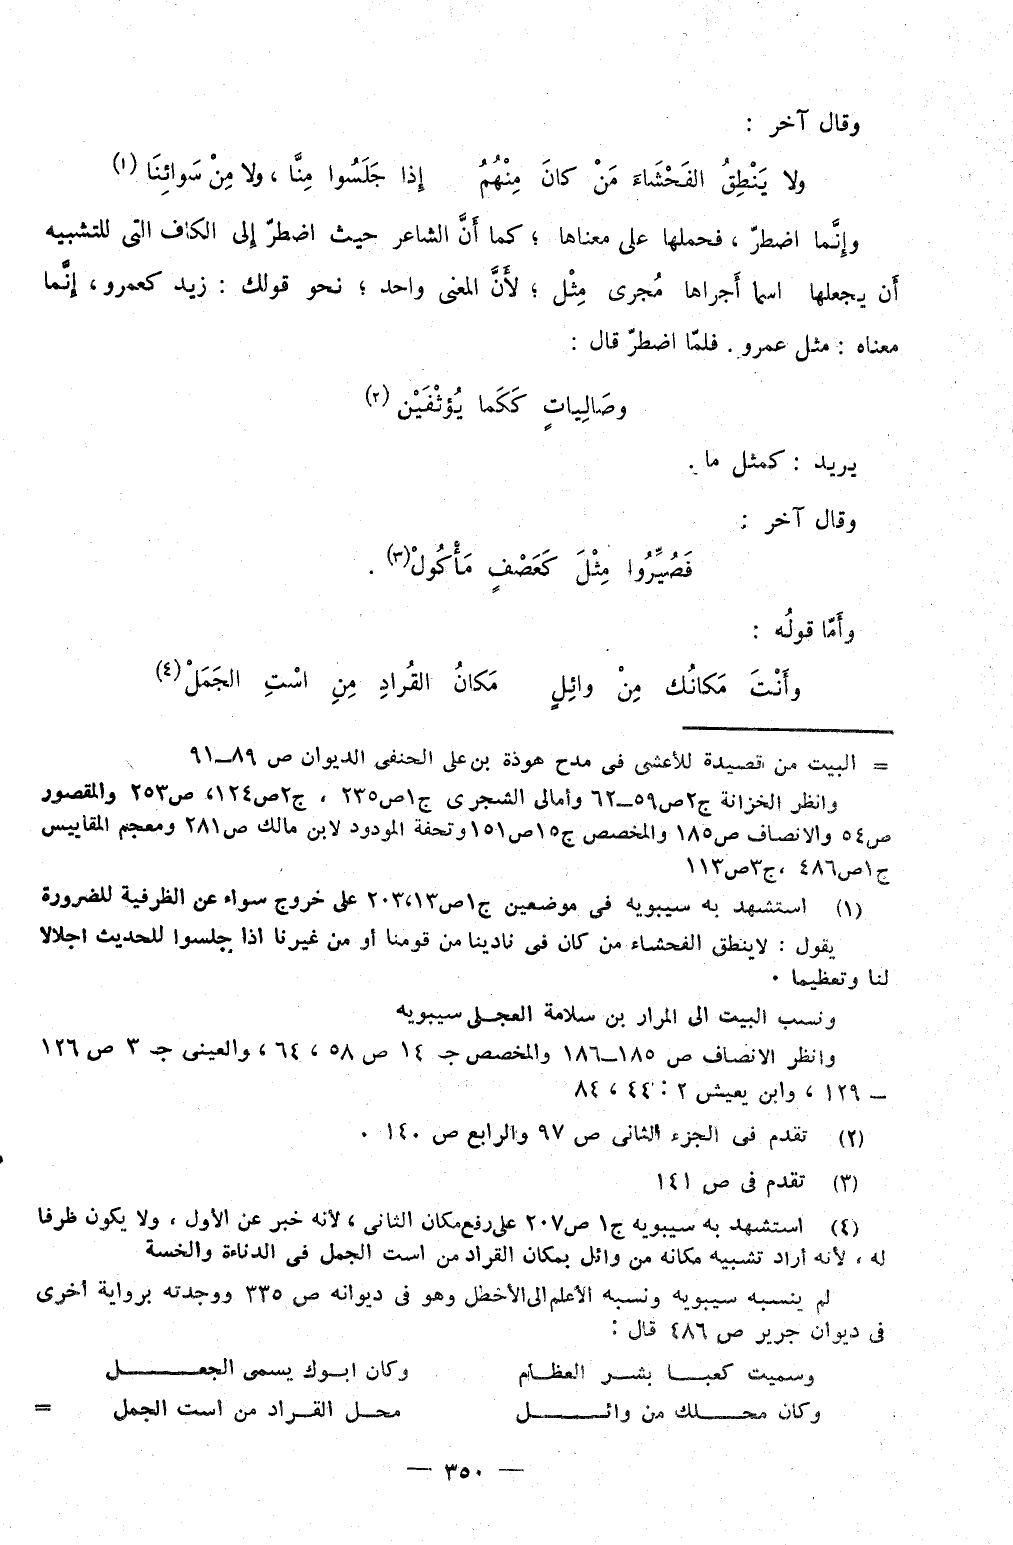 وقال آخر :
ولا يَنْطِقُ الفَحْشَاءَ مَنْ كانَ مِنْهُمُ إذا جَلَسُوا مِنَّا ، ولا مِنْ سَوائِنَا (١)
وإنَّما اضطرّ ، فحملها على معناها ؛ كما أَنَّ الشاعر حيث اضطرّ إلى الكاف التى للتشبيه
أَن يجعلها اسما أَجراها مُجرى مِثْل ؛ لأَنَّ المعنى واحد ؛ نحو قولك : زيد كعمرو ، إنَّما
معناه : مثل عمرو . فلمّا اضطرّ قال :
وصَالِياتٍ كَكَما يُؤثْفَيْن (٢)
يريد : كمثل ما .
وقال آخر :
فَصُيِّرُوا مِثْلَ كَعَصْفٍ مَأْكُولْ (٣) .
وأَمّا قولُه :
وأَنْتَ مَكانُك مِنْ وائِلٍ مَكانُ القُرادِ مِنِ اسْتِ الجَمَلْ (٤)
= البيت من قصيدة للأعشى فى مدح هوذة بن على الحنفى الديوان ص ٨٩ــ٩١
وانظر الخزانة ج٢ص٥٩ــ٦٢ وأمالى الشجرى ج١ص٢٣٥ ، ج٢ص١٢٤، ص٢٥٣ والمقصور
ص٥٤ والانصاف ص١٨٥ والمخصص ج١٥ص١٥١ وتحفة المودود لابن مالك ص٢٨١ ومعجم المقاييس
ج١ص٤٨٦ ،ج٣ص١١٣
(١) استشهد به سيبويه فى موضعين ج١ص٢٠٣،١٣ على خروج سواء عن الظرفية للضرورة
يقول : لاينطق الفحشاء من كان فى نادينا من قومنا أو من غيرنا اذا جلسوا للحديث اجلالا
لنا وتعظيما ٠
ونسب البيت الى المرار بن سلامة العجلى سيبويه
وانظر الانصاف ص ١٨٥ــ١٨٦ والمخصص جـ ١٤ ص ٥٨ ، ٦٤ ، والعينى جـ ٣ ص ١٢٦
ــ ١٢٩ ، وابن يعيش ٢ : ٤٤ ، ٨٤
(٢) تقدم فى الجزء الثانى ص ٩٧ والرابع ص ١٤٠ ٠
(٣) تقدم فى ص ١٤١
(٤) استشهد به سيبويه ج١ ص٢٠٧ على رفع مكان الثانى ، لأنه خبر عن الأول ، ولا يكون ظرفا
له ، لأنه أراد تشبيه مكانه من وائل بمكان القراد من است الجمل فى الدناءة والخسة
لم ينسبه سيبويه ونسبه الأعلم الى الأخطل وهو فى ديوانه ص ٣٣٥ ووجدته برواية أخرى
فى ديوان جرير ص ٤٨٦ قال :
وسميت كعبـــا بشــر العظــام وكان ابــوك يسمى الجعـــــــل
وكان محــــلك من وائــــــل محــل القــراد من است الجمل =
— ٣٥٠ —